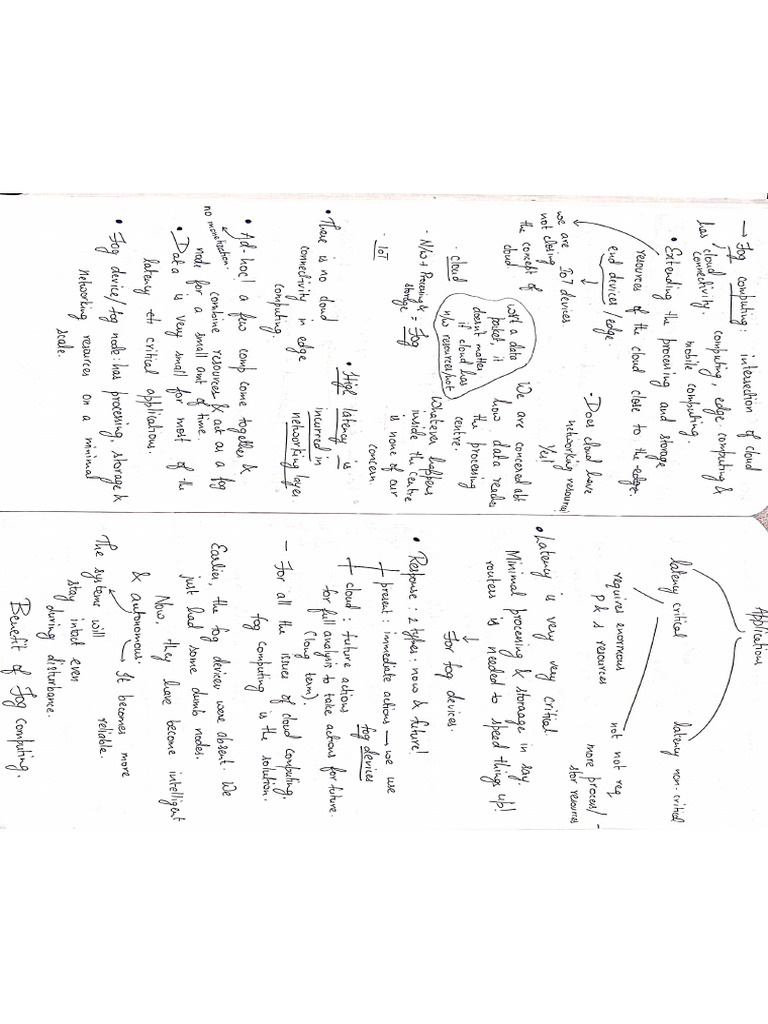 → Fog computing: intersection of cloud
computing, edge computing &
mobile computing.
has cloud
connectivity.
• Extending the processing and storage
resources of the cloud close to the edge.
end devices/edge.
IoT devices
we are
not closing
the concept of
cloud
• Does cloud have
networking resources
Yes!
wrt a data
packet, it
doesn't matter
if cloud has
n/w resources/not
We are concerned abt
how data reaches
the processing
centre.
Whatever happens
inside the centre
is none of our
concern
· cloud
· N/w + Processing &
storage = Fog
· IoT
• There is no cloud
connectivity in edge
computing.
• High latency is
incurred in
networking layer
• Ad-hoc! a few comp come together &
combine resources & act as a fog
node for a small amt of time
no monetization.
• Data is very small for most of the
latency critical applications.
• Fog device/fog node: has processing, storage &
networking resources on a minimal
scale.
Application
latency critical
latency non-critical
requires enormous
P & S resources
not not req
more process/
stor resources
• Latency is very very critical
Minimal processing & storage in say,
routers is needed to speed things up!
For fog devices.
• Response: 2 types: now & future!
present: immediate actions → we use
fog devices
cloud: future actions
for full analysis to take actions for future.
(long term).
- For all the issues of cloud computing,
fog computing is the solution.
Earlier, the fog devices were absent. We
just had some dumb nodes.
Now, they have become intelligent
& autonomous. → It becomes more
reliable.
The systems will
stay intact even
during disturbance.
Benefit of Fog Computing.